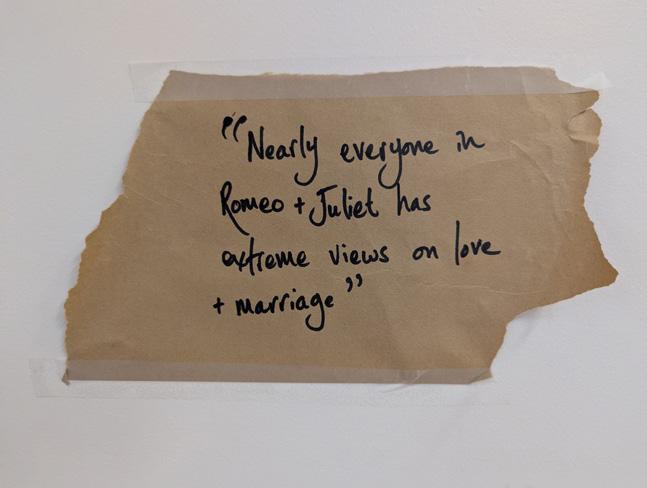 "Nearly everyone in
Romeo + Juliet has
extreme views on love
+ marriage"